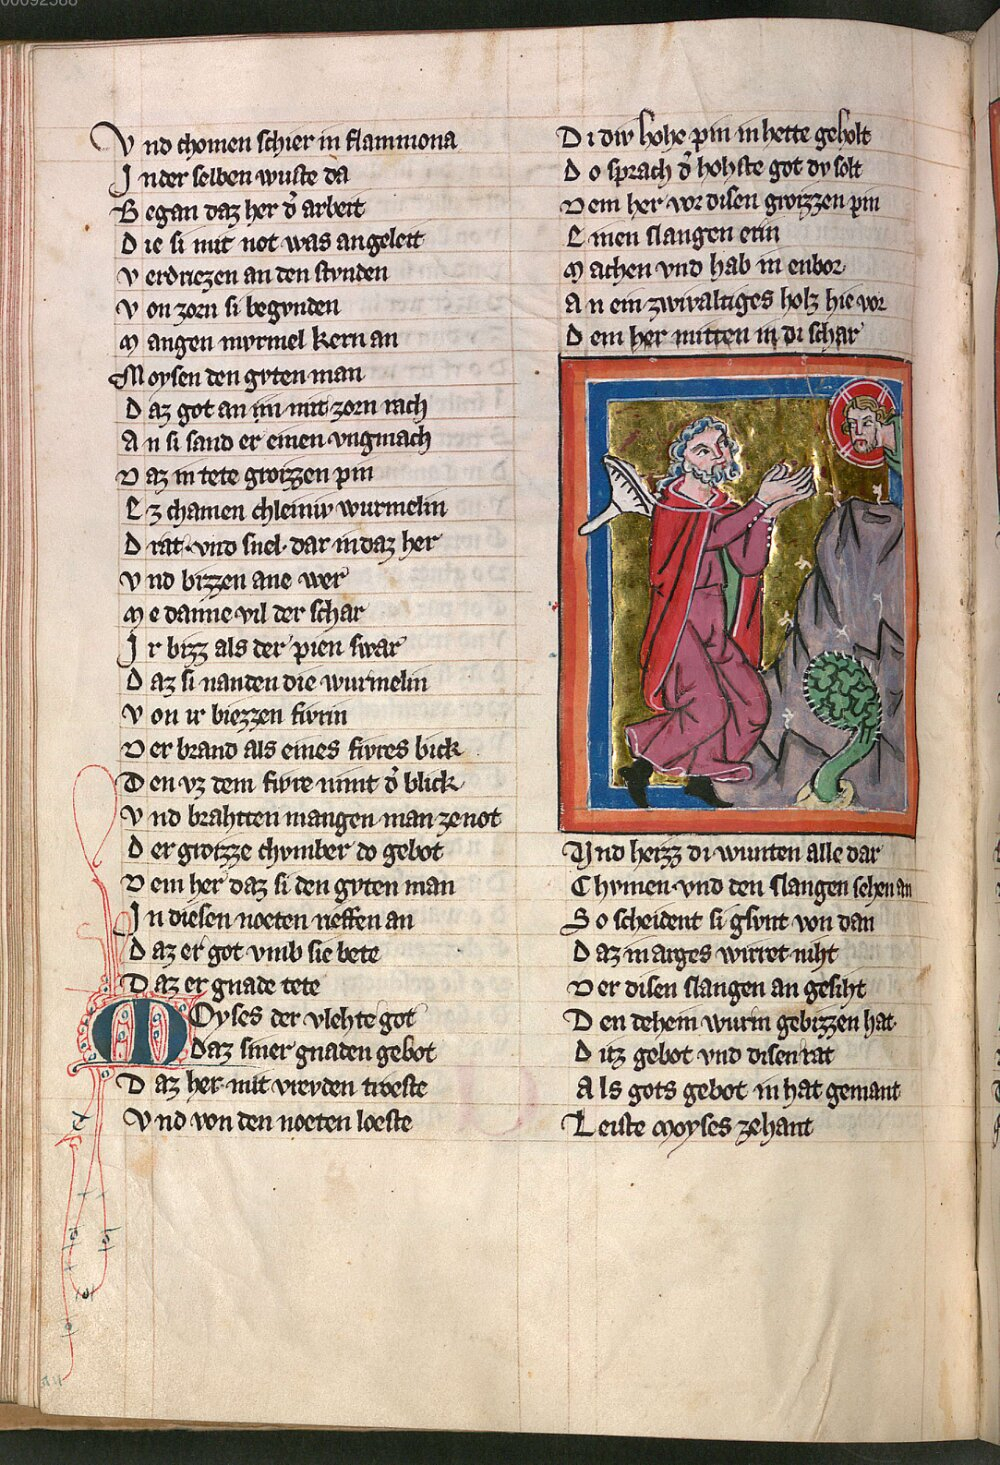 00092588
Vnd chomen schier in flammona
In der selben wuste da
Began daz her d̾ arbeit
Die si mit not was angeleit
Verdriezen an den stvnden
Von zorn si begvnden
Mangen mvrmel kern an
Moysen den gvten man
Daz got an im mit zorn rach
An si sand er einen vngmach
Daz in tete grozzen pin
Ez chamen chleiniv wurmelin
Drat vnd snel dar in daz her
Vnd bizzen ane wer
Me danne vil der schar
Ir bizz als der pien swar
Daz si nanden die wurmelin
Von ir biezzen fivrin
Der brand als eines fivres bick
Den vz dem fivre nimt d̾ blick
Vnd brahtten mangen man ze not
Der grozze chvmber do gebot
Dem her daz si den gvten man
In diesen noeten rieffen an
Daz er got vmb sie bete
Daz er gnade tete
Moyses der vlehte got
Daz siner gnaden gebot
Daz her mit vrevden troeste
Vnd von den noeten loeste
Di div hohe pin in hette geholt
Do sprach d̾ hohste got dv solt
Dem her vor disen grozzen pin
Einen slangen erin
Machen vnd hab in enbor
An ein zwivaltiges holz hie vor
Dem her mitten in di schar
Vnd heizz di wunten alle dar
Chvmen vnd den slangen sehen an
So scheident si gsvnt von dan
Daz in arges wirret niht
Der disen slangen an gesiht
Den dehein wurm gebizzen hat
Ditz gebot vnd disen rat
Als gots gebot in hat gemant
Leiste moyses zehant